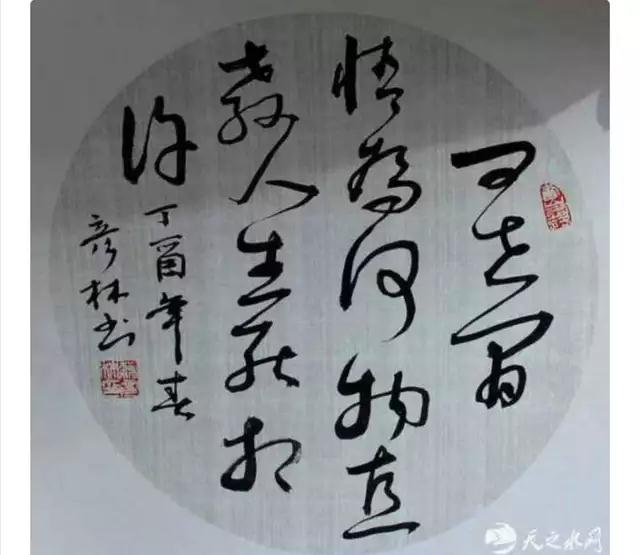 问世间
情為何物直
教人生死相
许
丁酉年春
彦林书
天之水网